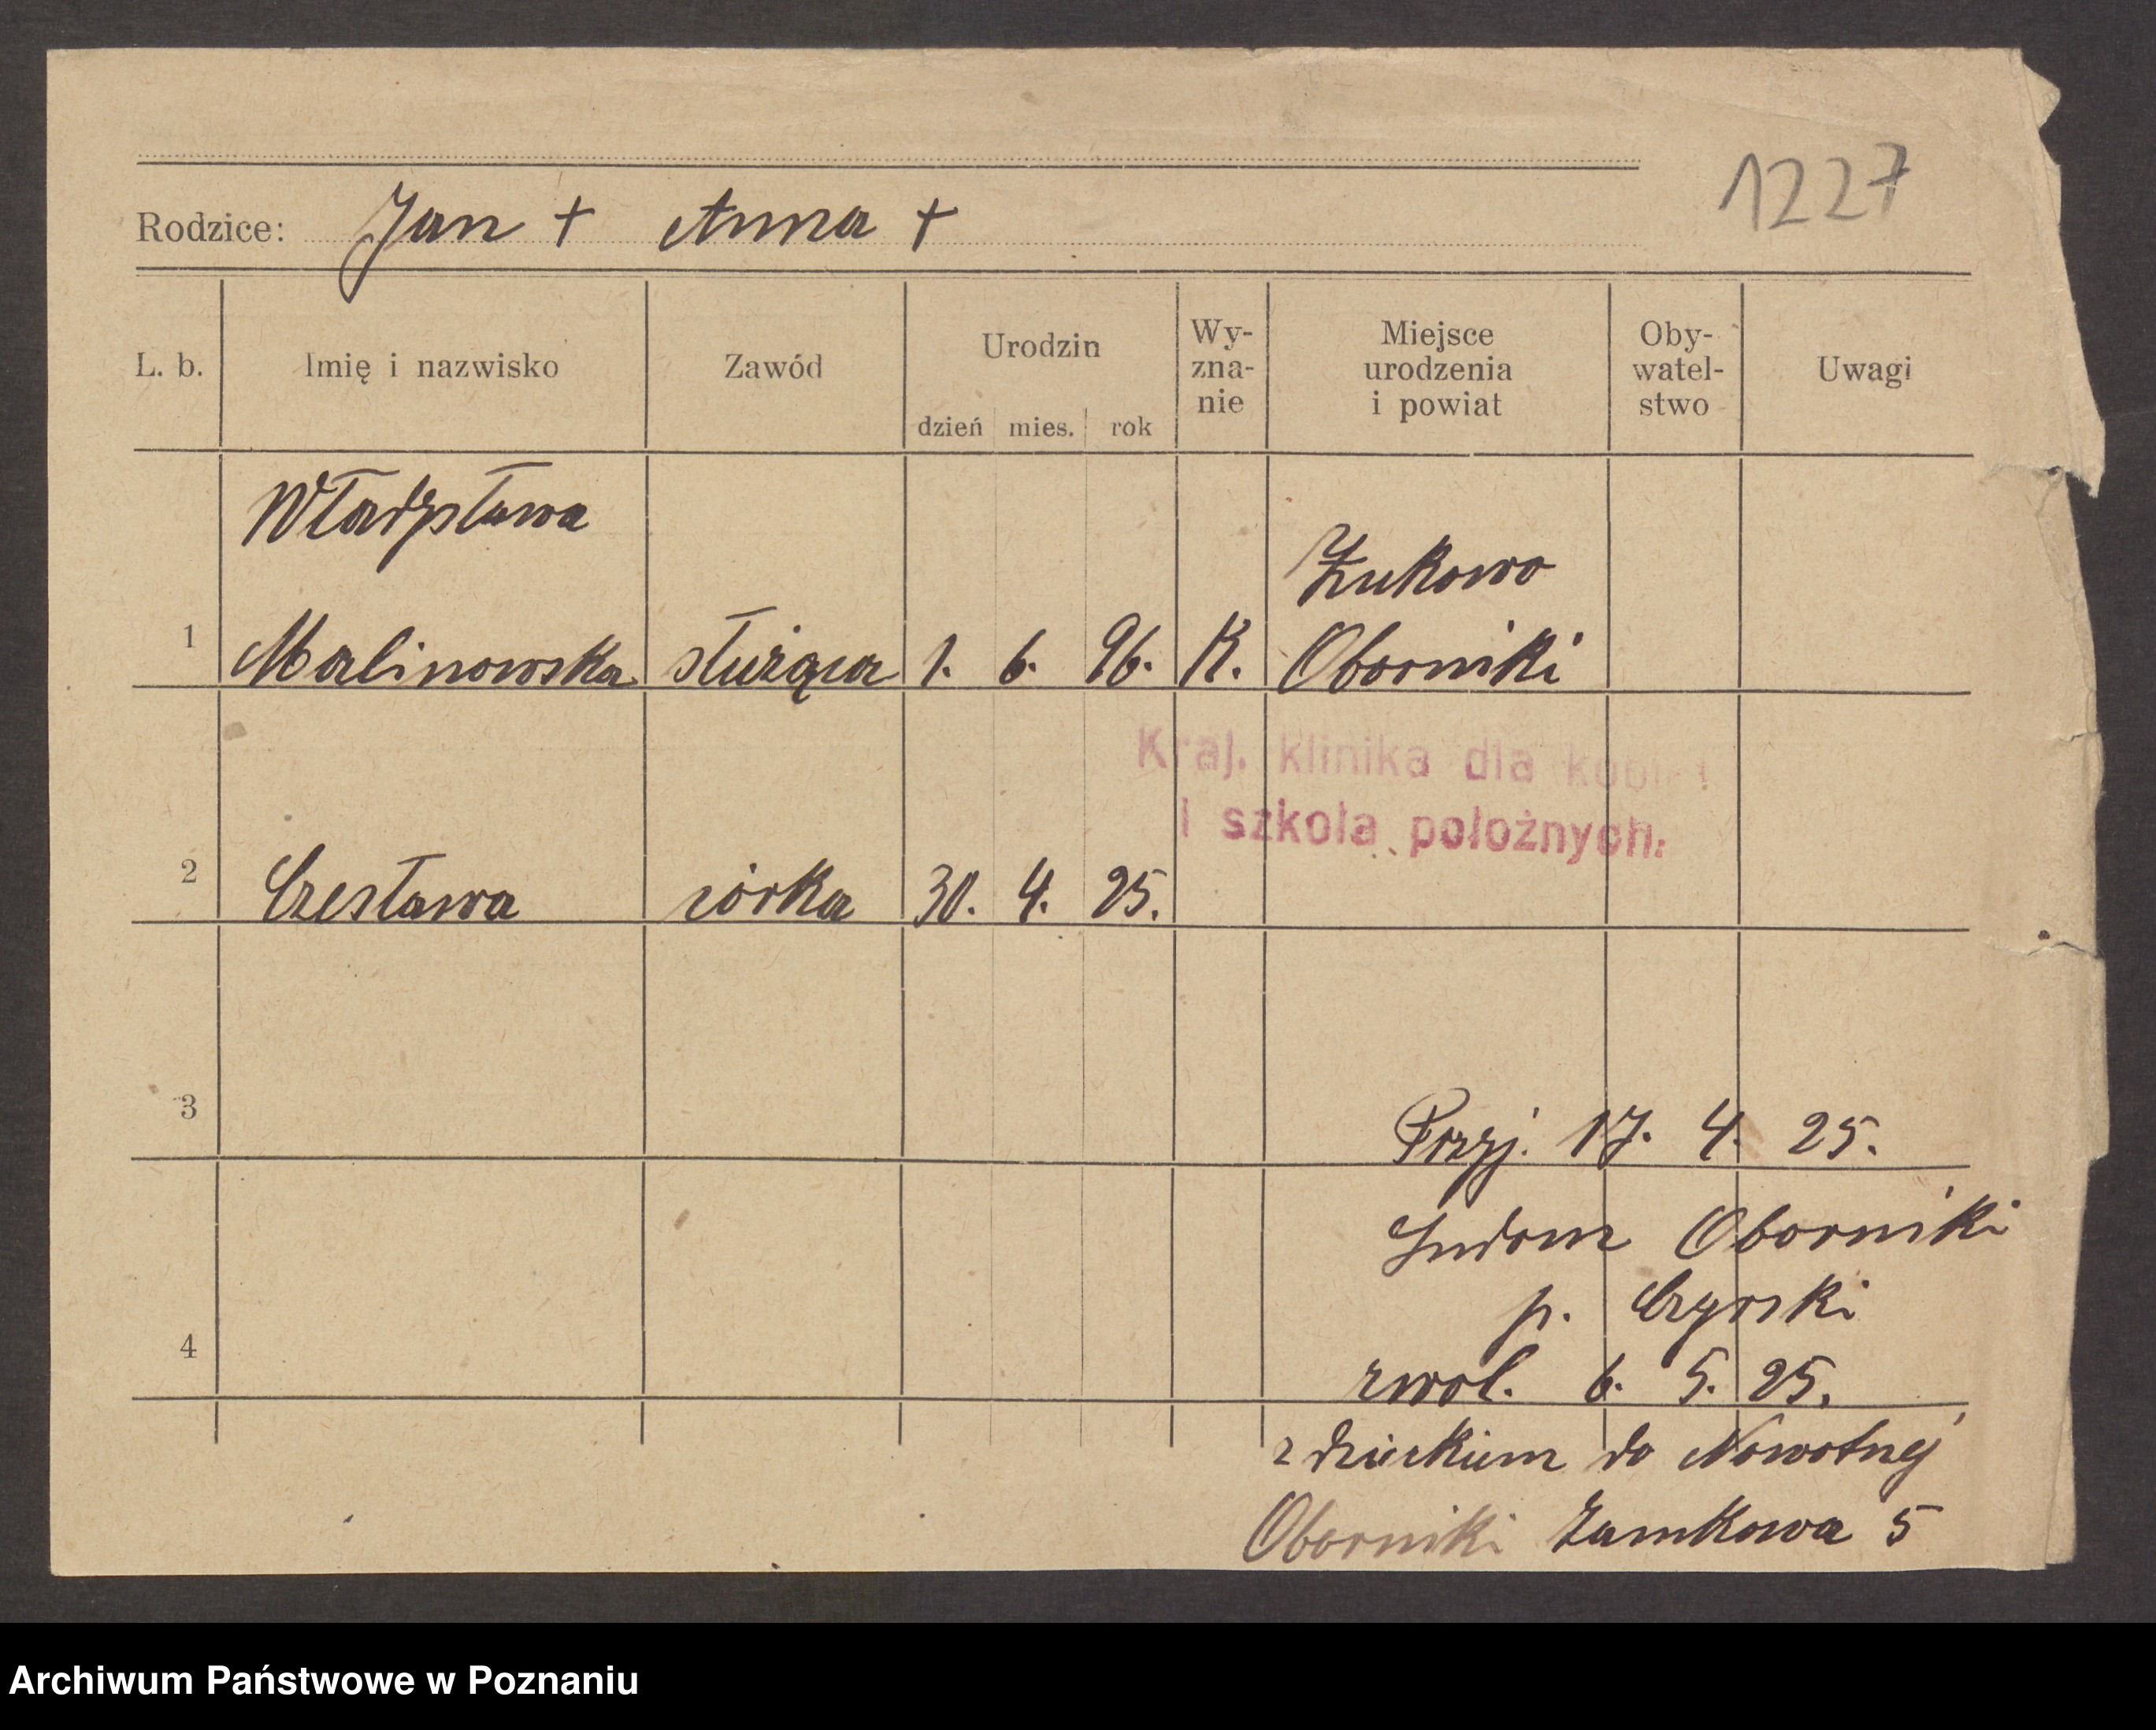 1227
Rodzice: Jan + Anna +
L. b. Imię i nazwisko Zawód Urodzin dzień mies. rok Wy-zna-nie Miejsce urodzenia i powiat Oby-watel-stwo Uwagi
Władysława
Żukowo
1 Malinowska służąca 1. 6. 96. K. Oborniki
Kraj. klinika dla kobiet
i szkoła położnych.
2 Czesława córka 30. 4. 25.
3
Przyj. 17. 4. 25.
Ludom Oborniki
p. Czyrski
4
zwol. 6. 5. 25.
z dzieckiem do Nowotnej
Oborniki Zamkowa 5
Archiwum Państwowe w Poznaniu